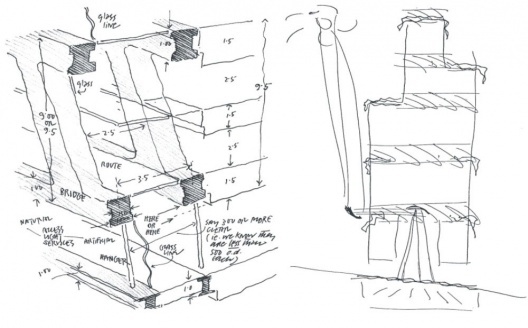 glass
line
1.00
1.5
2.5
9.5
glass
9.00
or
9.5
2.5
1.5
2.5
ROUTE
3.5
1.5
1.00
BRIDGE
NATURAL
ACCESS
LIGHT
SERVICES
ARTIFICIAL
HERE
OR
HERE
SAY 300 OR MORE
CLEAR
(ie. we know they
are less than
500 o.d.
HANGER
GLASS
LINE
1.00
1.0